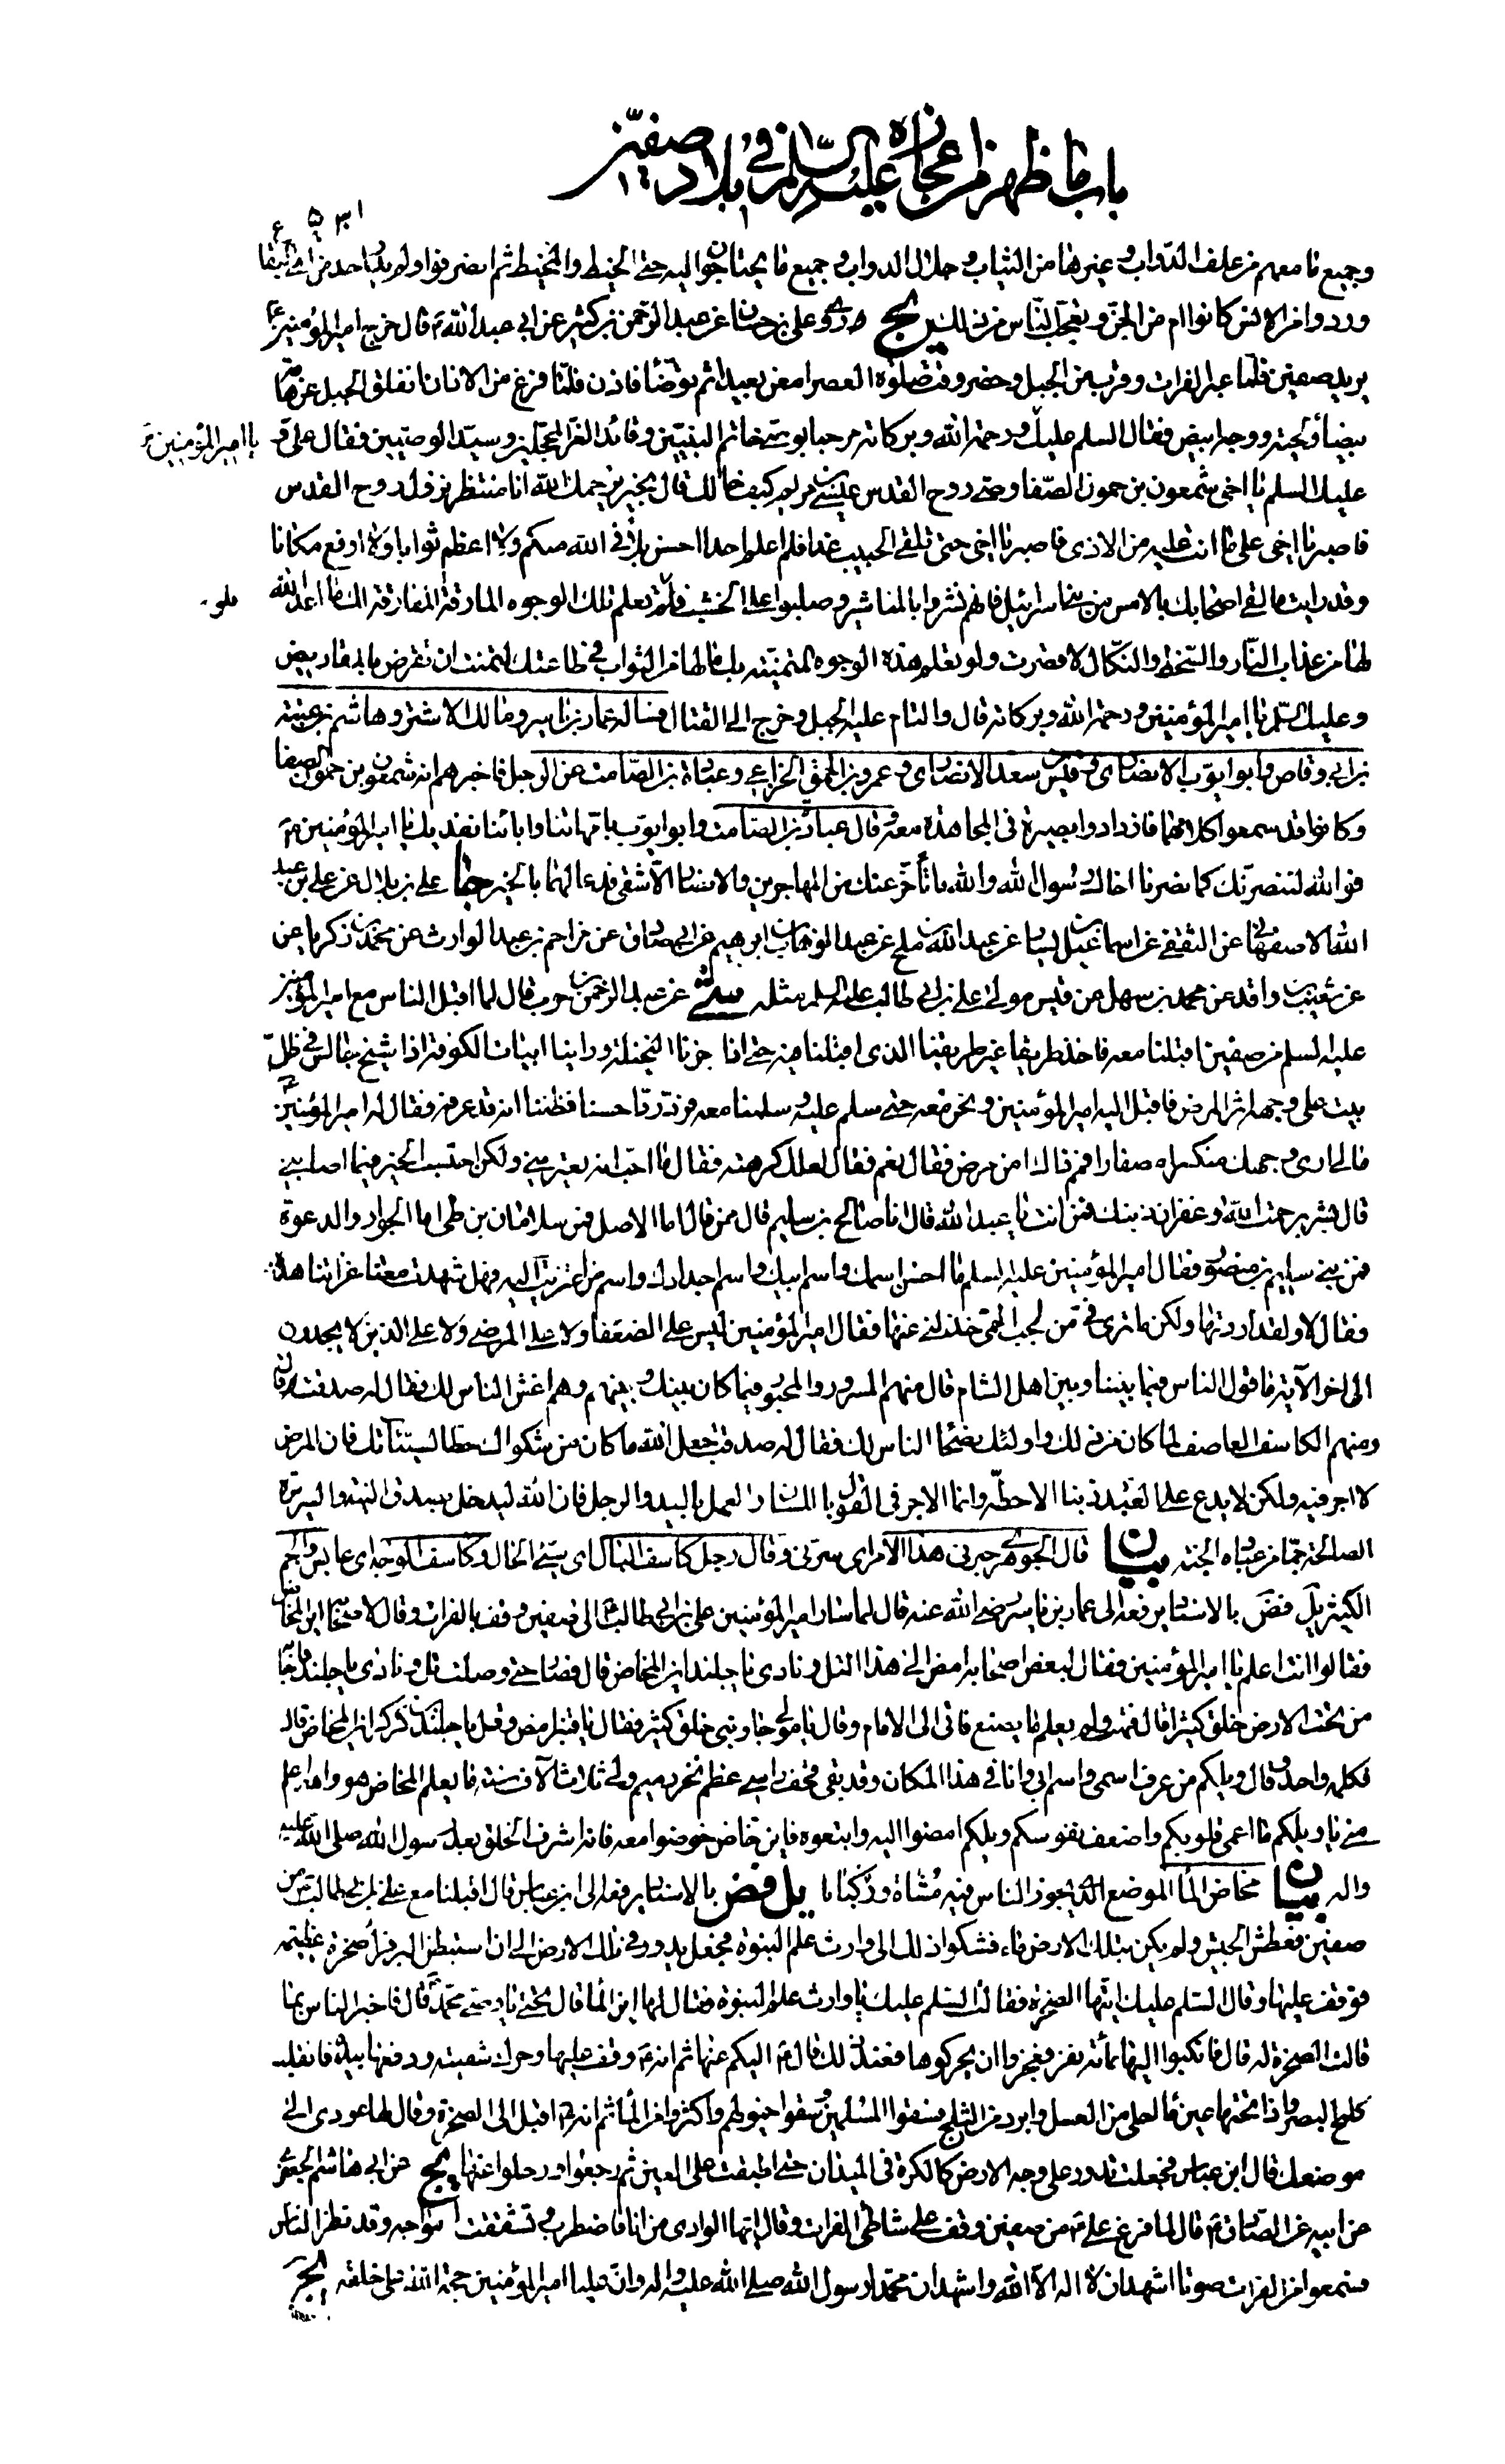 باب ما ظهر من اعجازه عليه السلام في بلاد صفين
وجميع ما معهم من علف الدواب وغيرها من الثياب و جلال الدواب و جميع ما يحتاجون اليه حتى الخيط والمخيط ثم انصرفوا ولم يدر احد من اى البقا
وردوا من الانس كانوا ام من الجن و تعجب الناس من ذلك يج روى على بن حسان عن عبد الرحمن بن كثير عن ابى عبد الله ع قال خرج امير المؤمنين ع
يريد صفين فلما عبر الفرات و قرب من الجبل و حضر وقت صلوة العصر امعن بعيدا ثم توضأ فاذن فلما فرغ من الاذان انفلق الجبل عن هامة
بيضاء ولحية ووجه ابيض فقال السلم عليك ورحمة الله وبركاته مرحبا بوصى خاتم النبيين و قائد الغر المحجلين وسيد الوصيين فقال على و يا امير المؤمنين
عليك السلم يا اخى شمعون بن حمون الصفا وصى روح القدس عيسى بن مريم كيف حالك قال بخير يرحمك الله انا منتظر نزول روح القدس
فاصبر يا اخى على ما انت عليه من الاذى فاصبر يا اخى حتى تلقى الحبيب غدا فلم اعلم احدا احسن بلاء فى الله منكم ولا اعظم ثوابا ولا ارفع مكانا
وقد رايت ما لقى اصحابك بالامس من بنى اسرائيل فانهم نشروا بالمناشير و صلبوا على الخشب فلو تعلم تلك الوجوه المارقة المفارقة لك ما اعد الله
لها من عذاب النار والسخط والنكال لاقصرت ولو تعلم هذه الوجوه المتمنية بك ما لها من الثواب فى طاعتك لتمنت ان تقرض بالمقاريض
وعليك السلم يا امير المؤمنين ورحمة الله وبركاته قال والتام عليه الجبل و خرج الى القتال فساله عمار بن ياسر و مالك الاشتر و هاشم بن عتبة
بن ابى وقاص و ابو ايوب الانصارى و قيس بن سعد الانصارى و عمرو بن الحمق الخزاعى و عبادة بن الصامت عن الرجل فاخبرهم انه شمعون بن حمون الصفا
وكانوا قد سمعوا كلامهما فازدادوا بصيرة فى المجاهدة معه وقال عبادة بن الصامت و ابو ايوب بامهاتنا وابائنا نفديك يا امير المؤمنين
فوالله لننصرنك كما نصرنا اخاك رسول الله والله ما تأخر عنك من المهاجرين والانصار الا شقى فدعا لهما بالخير جا على بن بلال عن على بن عبد
الله الاصفهانى عن الثقفى عن اسماعيل بن يسار عن عبد الله بن ملح عن عبد الوهاب بن ابرهيم عن ابى صادق عن مزاحم بن عبد الوارث عن محمد بن زكريا عن
عن شعيب بن واقد عن محمد بن سهل عن قيس مولى على بن ابى طالب عليه السلم مثله عن عبد الرحمن بن جندب قال لما اقبل الناس مع امير المؤمنين
عليه السلم من صفين اقبلنا معه فاخذ طريقا غير طريقنا الذى اقبلنا فيه حتى اذا جزنا النخيلة و راينا ابيات الكوفة اذا شيخ جالس فى ظل
بيت على وجهه اثر المرض فاقبل اليه امير المؤمنين و نحن معه حتى سلم عليه و سلمنا معه فرد ردا حسنا فظننا انه قد عرفه فقال له امير المؤمنين
مالى ارى وجهك منكسرا مصفارا فمم ذاك امن مرض فقال نعم فقال لعلك كرهته فقال ما احب انه بغيرى ولكن احتسب الخير فيما اصابنى
قال ابشر برحمة الله و غفران ذنبك فمن انت يا عبد الله قال انا صالح بن سليم قال ممن قال اما الاصل فمن سلامان بن طى اما الجوار والدعوة
فمن بنى سليم بن منصور فقال امير المؤمنين عليه السلم ما احسن اسمك و اسم ابيك واسم اجدادك واسم من اعتزيت اليه فهل شهدت معنا غزاتنا هذه
فقال لا ولقد اردتها ولكن ما ترى فى من لجب الحمى خذلنى عنها فقال امير المؤمنين ليس على الضعفاء ولا على المرضى ولا على الذين لا يجدون
الى اخر الآية ما قول الناس فيما بيننا وبين اهل الشام قال منهم المسرور والمحبور فيما كان بينك و بينهم و هم اغش الناس لك فقال له صدقت قال
ومنهم الكاسف الاسف لما كان من ذلك و اولئك نصحاء الناس لك فقال له صدقت جعل الله ما كان من شكواك حطا لسيئاتك فان المرض
لا اجر فيه ولكن لا يدع على العبد ذنبا الا حطه وانما الاجر فى القول باللسان والعمل باليد والرجل فان الله ليدخل بصدق النية والسريرة
الصالحة جما من عباده الجنة بيان قال الجوهرى حبرنى هذا الامر اى سرنى وقال رجل كاسف البال اى سيئ الحال وكاسف الوجه اى عابس والجم
الكثير يل فض بالاسناد يرفعه الى عمار بن ياسر رضى الله عنه قال لما سار امير المؤمنين على بن ابى طالب الى صفين وقف بالفرات وقال لاصحابه اين المخاض
فقالوا انت اعلم يا امير المؤمنين وقال لبعض اصحابه امض الى هذا التل و نادى يا جلندا اين المخاض قال فصار حتى وصل التل و نادى يا جلندا فاجابه
من تحت الارض خلق كثير قال فبهت ولم يعلم ما يصنع فاتى الى الامام وقال يا مولاى جاوبنى خلق كثير فقال يا قنبر امض وقل يا جلندا بن كركر اين المخاض قال
فكلمه واحد وقال ويلكم من عرف اسمى واسم ابى و انا فى هذا المكان وقد بقى قحف راسى عظم نخر رميم ولى ثلاث آلاف سنة ما يعلم المخاض هو والله اعلم
منى يا ويلكم ما اعمى قلوبكم و اضعف نفوسكم ويلكم امضوا اليه واتبعوه فاين خاض خوضوا معه فانه اشرف الخلق بعد رسول الله صلى الله عليه
واله بيان مخاض الماء الموضع الذى يجوز الناس فيه مشاة و ركبانا يل فض بالاسناد يرفعه الى ابن عباس قال اقبلنا مع على بن ابى طالب من
صفين فعطش الجيش ولم يكن بتلك الارض ماء فشكوا ذلك الى وارث علم النبوة فجعل يدور فى تلك الارض الى ان استبطن البر فراى صخرة عظيمة
فوقف عليها وقال السلم عليك ايتها الصخرة فقالت السلم عليك يا وارث علم النبوة فقال لها اين الماء قال تحتى يا وصى محمد قال فاخبر الناس بما
قالت الصخرة له قال فانكبوا اليها بمائة نفر فعجزوا ان يحركوها فعند ذلك قال ع اليكم عنها ثم انه ع وقف عليها وحرك شفتيه و دفعها بيده فانقلبت
كلمح البصر واذا تحتها عين ماء احلى من العسل و ابرد من الثلج فسقوا المسلمون و سقوا خيولهم و اكثروا من الماء ثم انه ع اقبل الى الصخرة وقال لها عودى الى
موضعك قال ابن عباس فجعلت تدور على وجه الارض كالكرة فى الميدان حتى اطبقت على العين ثم رجعوا و رحلوا عنها يج عن ابى هاشم الجعفرى
عن ابيه عن الصادق ع قال لما فرغ على ع من صفين وقف على شاطئ الفرات وقال ايها الوادى من انا فاضطرب و تشققت امواجه وقد نظر الناس
فسمعوا من الفرات صوتا اشهد ان لا اله الا الله واشهد ان محمدا رسول الله صلى الله عليه واله وان عليا امير المؤمنين حجة الله على خلقه يج